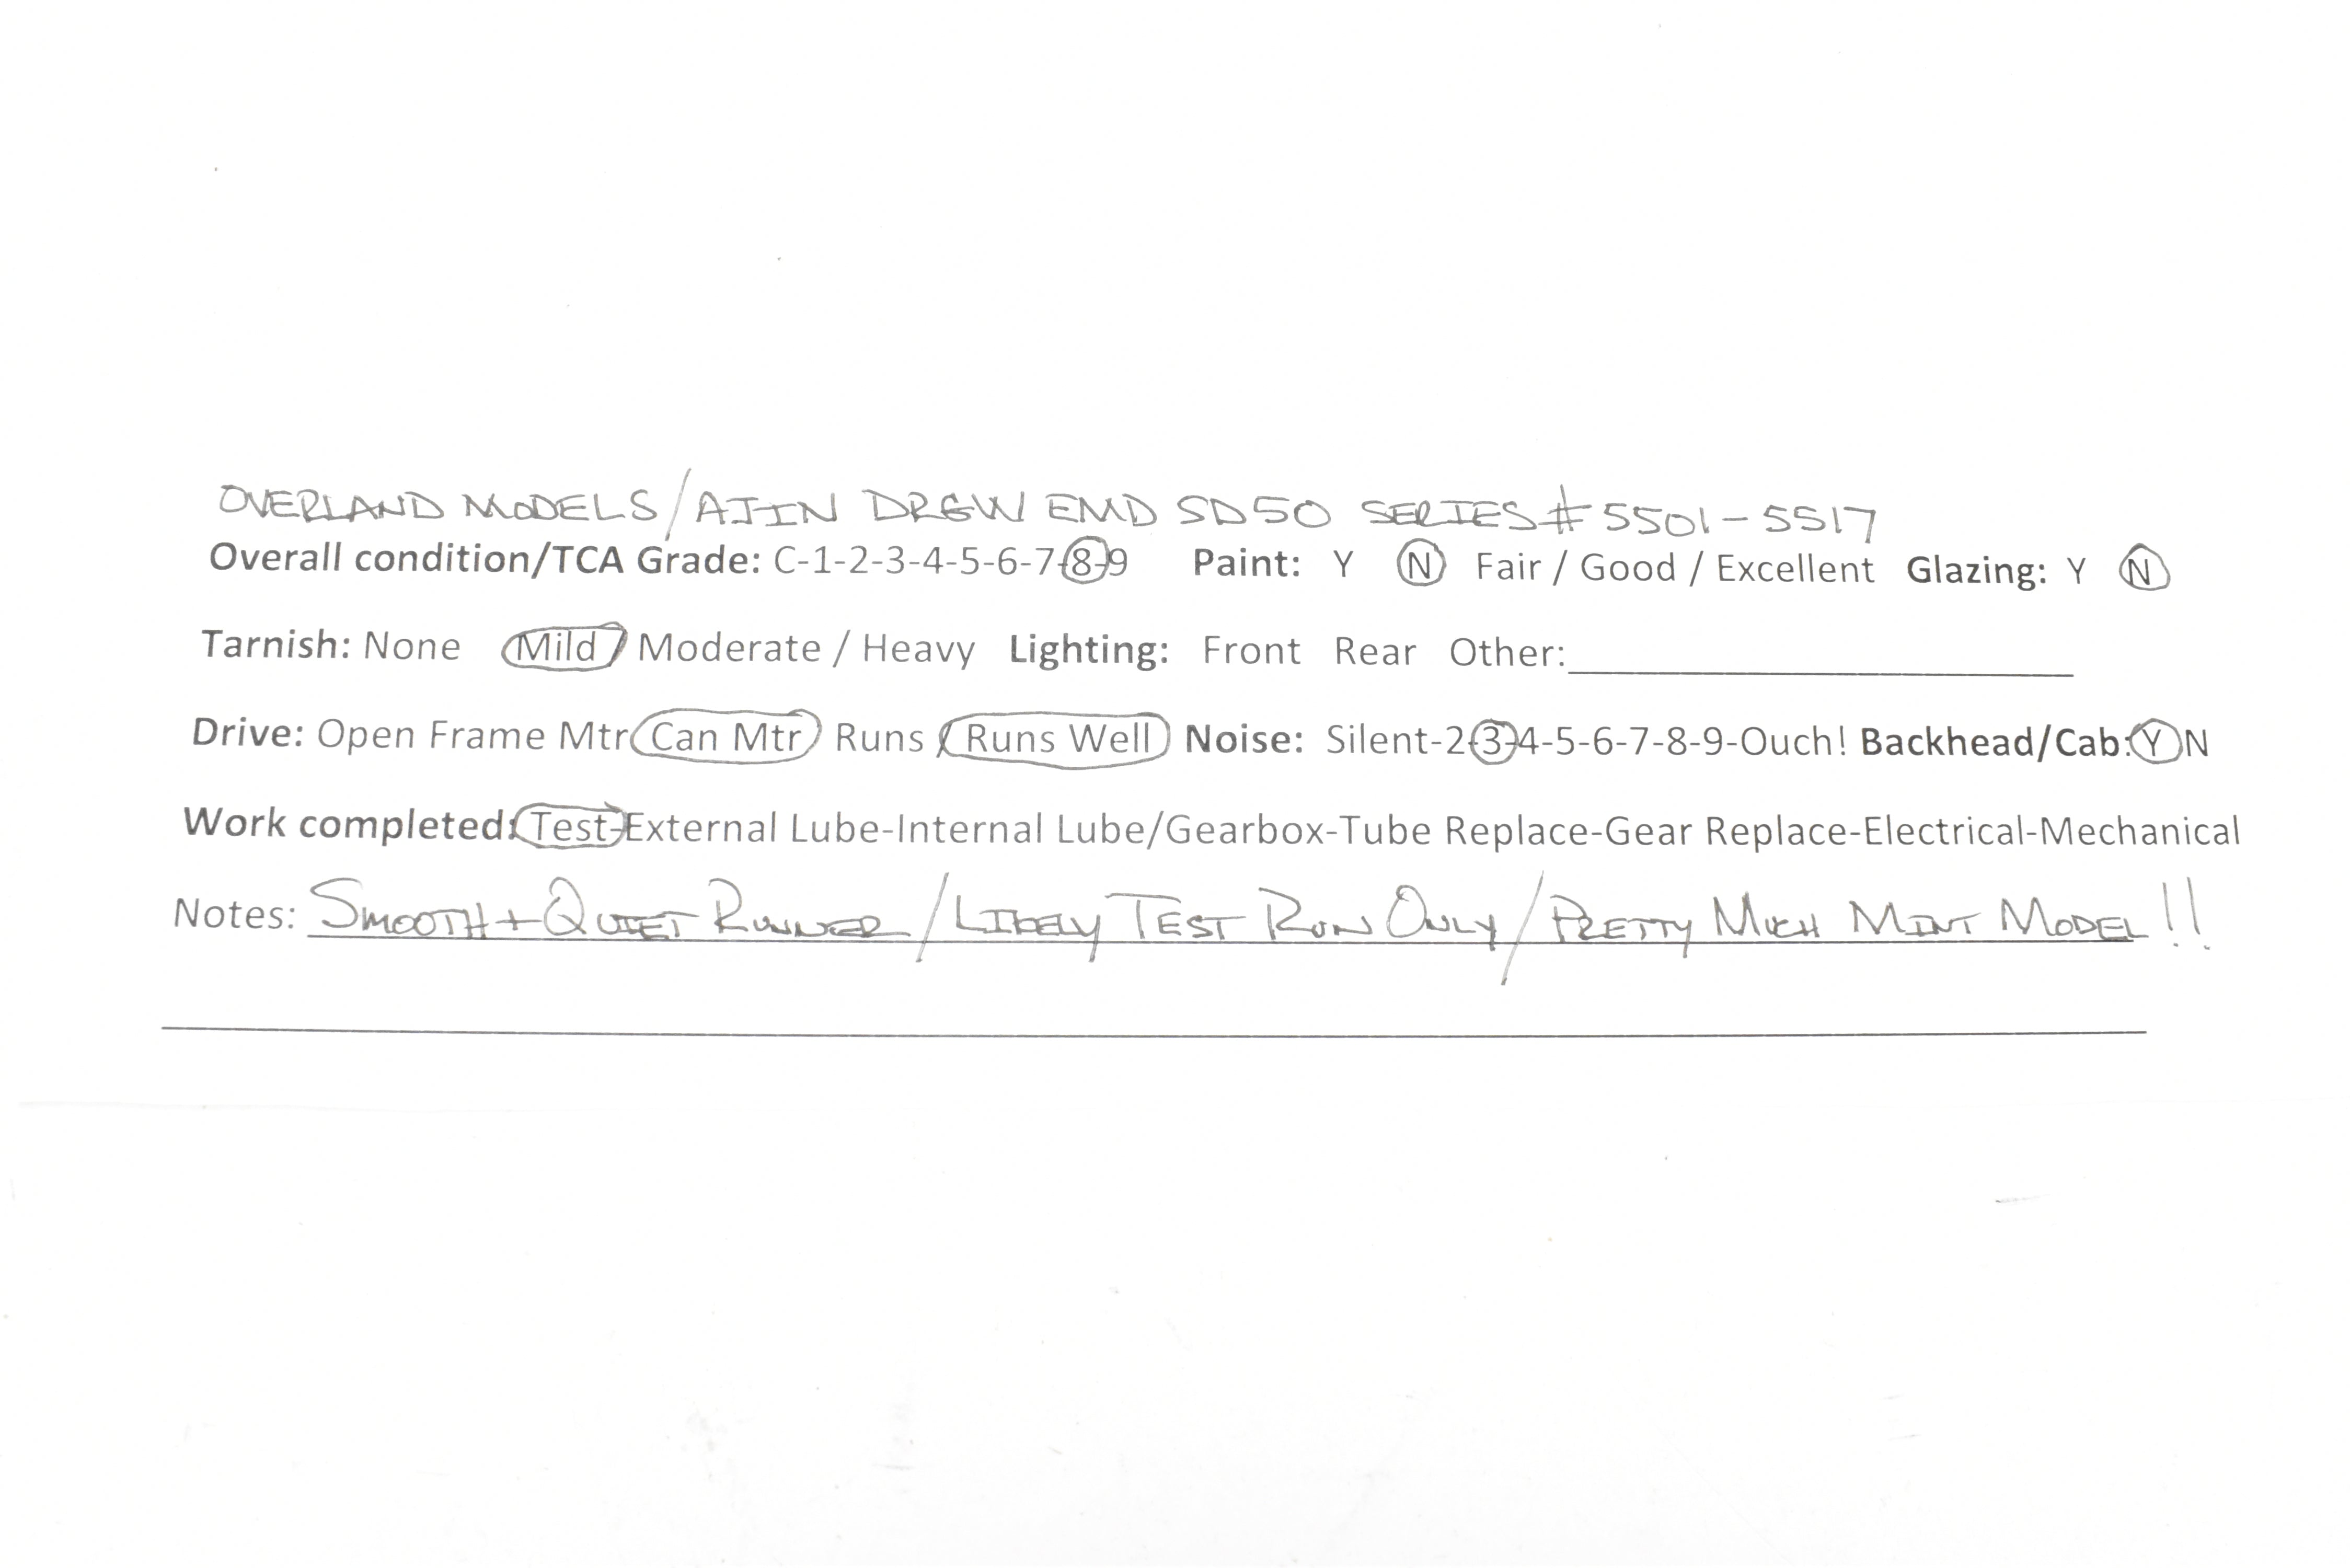 OVERLAND MODELS/AJIN DRGW EMD SD50 SERIES # 5501-5517
Overall condition/TCA Grade: C-1-2-3-4-5-6-7-8-9 Paint: Y N Fair / Good / Excellent Glazing: Y N
Tarnish: None Mild / Moderate / Heavy Lighting: Front Rear Other:
Drive: Open Frame Mtr Can Mtr Runs / Runs Well Noise: Silent-2-3-4-5-6-7-8-9-Ouch! Backhead/Cab: Y N
Work completed: Test-External Lube-Internal Lube/Gearbox-Tube Replace-Gear Replace-Electrical-Mechanical
Notes: SMOOTH + QUIET RUNNER / LIKELY TEST RUN ONLY / PRETTY MUCH MINT MODEL!!